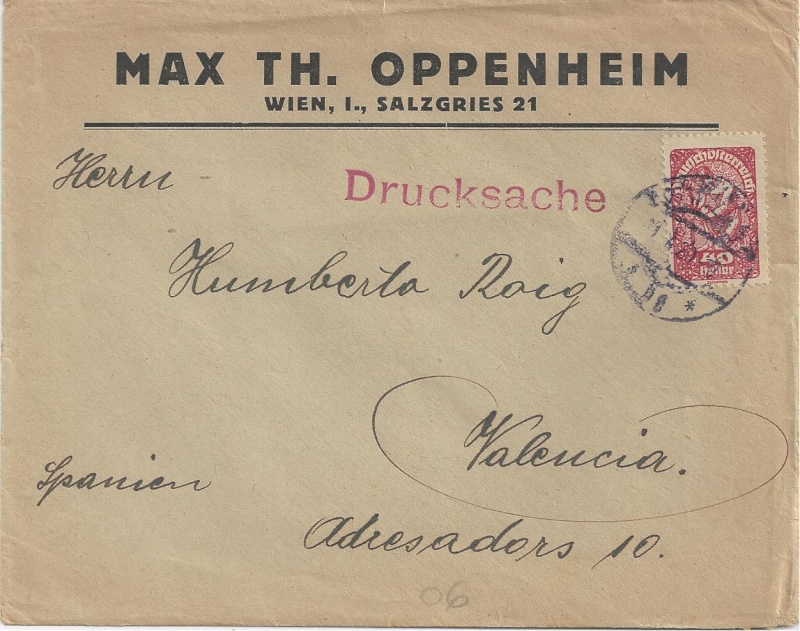 MAX TH. OPPENHEIM
WIEN, I., SALZGRIES 21
Herrn
Drucksache
Deutschösterreich
40
Heller
Humberto Roig
Valencia.
Spanien
Adresadors 10.
06